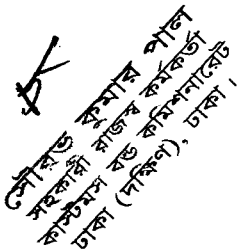 সৌরভ কুমার পাল
সহকারী রাজস্ব কর্মকর্তা
কাস্টমস বন্ড কমিশনারেট
ঢাকা (দক্ষিণ), ঢাকা।